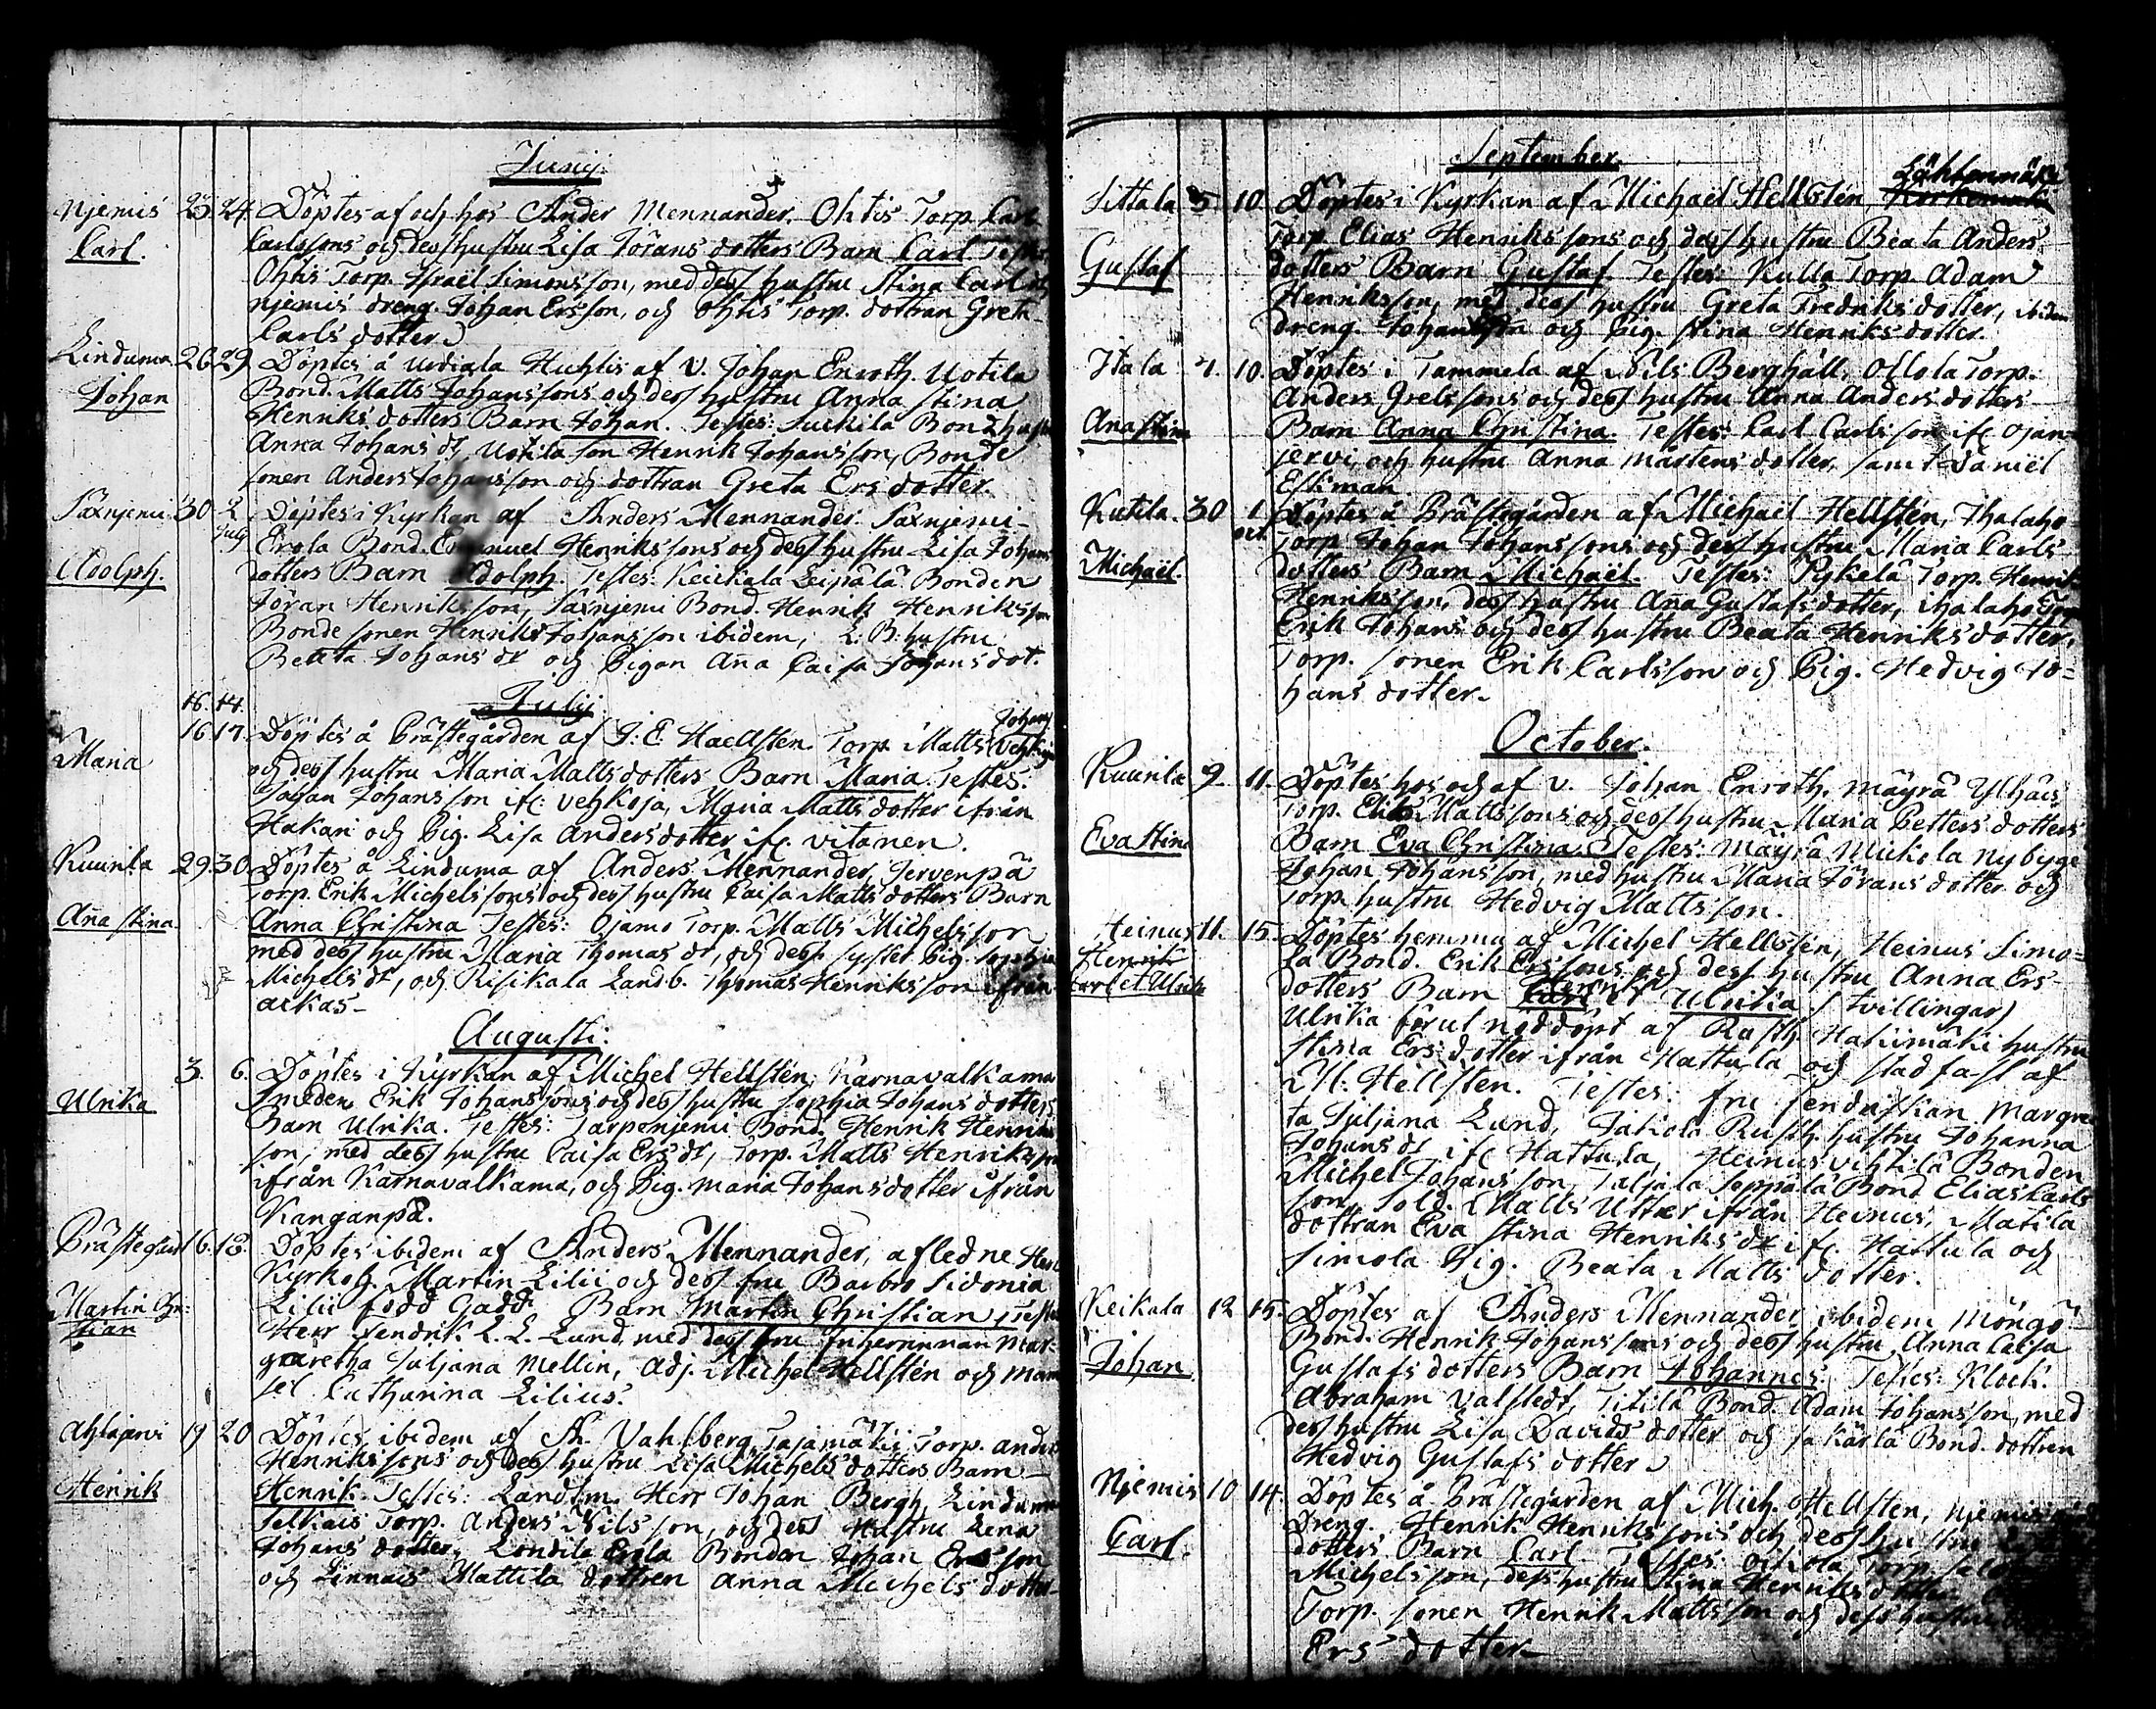 Junij.
Njemis 23 24. Döptes af och hos Ander Mennander. Ohtis Torp. Carl
Carl. Carlssons och dess hustru Lisa Jörans dotters Barn Carl Testes
Ohtis Torp. Israël Simonsson, med dess hustru Stina Carl
Njemis dreng. Johan Ersson, och Ohtis Torp. dottran Greta
Carls dotter
Linduma 26 29 Döptes å Urdiala Huhtis af V. Johan Enroth. Uotila
Johan Bond. Matts Johanssons och dess hustru Anna Stina
Henriks dotters Barn Johan. Testes: Suckila Bond hust
Anna Johans dr, Uotila son Henrik Johansson, Bonde
sonen Anders Johansson och dottran Greta Ers dotter.
Saxnjemi 30 2 July Döptes i Kyrkan af Anders Mennander. Saxnjemi
Erola Bond. Emanuel Henrikssons och dess hustru Lisa Johans
Adolph. dotters Barn Adolph. Testes: Keickala Leipälä Bonden
Jöran Henriksson, Saxnjemi Bond. Henrik Henriksson
Bonde sonen Henrik Johansson ibidem, L: B: hustru
Beata Johans dr och Pigan Aña Caisa Johans dot.
16. 17.
July
16 17. Döptes å Prästegården af J: E: Haellsten. Torp. Matts Johans Vehkoja
Maria och dess hustru Maria Matts dotters Barn Maria. Testes:
Johan Johansson ifr. Vehkoja, Maria Matts dotter ifrån
Hakari och Pig. Lisa Anders dotter ifr. Vitanen.
Kuurila 29. 30. Döptes å Linduma af Anders Mennander, Jervenpä
Torp. Erik Michelssons och dess hustru Caisa Matts dotters Barn
Aña Stina. Anna Christina Testes: Ojamo Torp. Matts Michelsson
med dess hustru Maria Thomas dr, och dess syster Pig. Sophia
Michels dr, och Risikala Landb. Thomas Henriksson ifrån
arkas-
Augusti:
3. 6. Döptes i Kyrkan af Michel Hellsten, Karnavalkama
Smeden Erik Johanssons och dess hustru Sophia Johans dotters
Ulrika Barn Ulrika. Testes: Tarpenjemi Bond. Henrik Henriks
son, med dess hustru Caisa Ers dr, Torp. Matts Henriksson
ifrån Karnavalkama, och Pig. Maria Johans dotter ifrån
Kanganpä.
Prästegård 16. 18. Döptes ibidem af Anders Mennander, afledne Herr
Kyrkoh. Martin Lilii och dess fru Barbro Sidonia
Martin Chri- Lilii född Gadd, Barn Martin Christian, Testes
stian Herr Fendrik L. L. Lund med dess fru Inherrinnan Mar-
garetha Juljana Mellin, Adj. Michel Hellsten och Mam
sel Catharina Lilius.
Ahtajervi 19 20 Döptes ibidem af A. Vahlberg, Torp. Anders
Henrikssons och dess hustru Lisa Michels dotters Barn
Henrik Henrik. Testes: Landtm. Herr Johan Bergh, Linduma
Selkais Torp. Anders Nilsson, och dess Hustru Lena
Johans dotter, Londila Erola Bonden Johan Ersson
och Linnais Mattila dottren Anna Michels dotter-
September
Sittala 5. 10. Döptes i Kyrkan af Michaël Hellstén Lähtenmäki
Torp. Elias Henrikssons och dess hustru Beata Anders
Gustaf dotters Barn Gustaf Testes: Kulla Torp. Adam
Henriksson, med dess hustru Greta Fredriks dotter, ibidem
dreng. Johan och Pig. Stina Henriks dotter.
Itala 7. 10. Döptes i Tammela af Nils Berghäll, Ollola Torp.
Anders Grelssons och dess hustru Anna Anders dotters
Ana Stina Barn Anna Christina. Testes: Carl Carlsson ifr. Ojan
jervi, och hustru Anna Mårtens dotter, samt Daniel
Estman
Kutila. 30 1 oct. Döptes å Prästegården af Michaël Hellstén, Ihalaho
Torp. Johan Johanssons och dess hustru Maria Carls
Michaël. dotters Barn Michaël. Testes: Pykelä Torp. Henrik
Henriksson, dess hustru Aña Gustafs dotter, Ihalaho Torp
Erik Johans och dess hustru Beata Henriks dotter,
Torp. sonen Erik Carlsson och Pig. Hedvig Jo=
hans dotter.
October.
Kuurila 9 11. Döptes hos och af V. Johan Enroth, Mäyrä Ylhäis
Torp. Elias Mattssons och dess hustru Maria Petters dotters
Eva Stina Barn Eva Christina. Testes: Mäyrä Mickola nybyge
Johan Johansson, med hustru Maria Jörans dotter och
Torp. hustru Hedvig Mattsson.
Heinus 11. 15. Döptes hemma af Michel Hellstén, Heinus Simo=
Henrik la Bond. Erik Erssons och dess hustru Anna Ers-
Carl et Ulrika dotters Barn Henrik Carl et Ulrika (tvillingar)
Ulrika förut nöddöpt af Rusth. Hakimäki hustru
Stina Ers dotter ifrån Hattula och stadfäst af
M. Hellsten. Testes: fru Fendriskan Margre
ta Juljana Lund, Jakola Rusth. hustru Johanna
Johans dr ifr. Hattula, Heinus Vihtilä Bonden
Michel Johansson, Taljala Seppälä Bond. Elias Carls
son, Sold. Matts Utter ifrån Heinus, Matila
dottran Eva Stina Henriks dr ifr. Hattula och
Simola Pig. Beata Matts dotter.
Keikala 12 15. Döptes af Anders Mennander ibidem Möngö
Bond. Henrik Johanssons och dess hustru Anna Caisa
Johan Gustafs dotters Barn Johannes: Testes: Klock.
Abraham Valstedt, Titilä Bond. Adam Johansson, med
dess hustru Lisa Davids dotter och Bond. dottren
Hedvig Gustafs dotter
Njemis 10 14. Döptes å Prästegården af Mich. Hellsten, Njemis
Dreng. Henrik Henrikssons och dess hustru
Carl. dotters Barn Carl Testes: Torp.
Michelsson, dess hustru Stina Henriks dotter
Torp. sonen Henrik Mattsson och dess hustru
Ers dotter